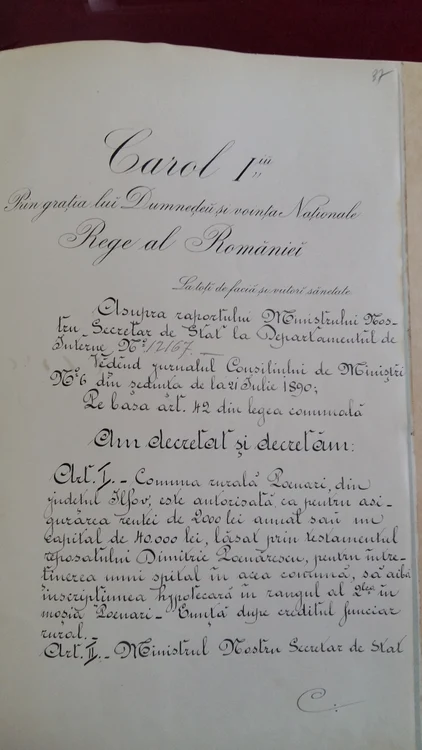 37
Carol I iŭ
Prin grația luĭ Dumnedeŭ și voința Națională
Rege al Românieĭ
La toți de facia și viitori, sănetate.
Asupra raportului Ministrului Nos-
tru Secretar de Stat la Departamentul de
Interne Nº 12167. —
Vedênd jurnalul Consiliului de Miniștri
Nº 6 din ședința de la 21 Iulie 1890;
Pe basa art. 42 din legea comunală
Am decretat și decretăm:
Art. I. — Comuna rurală Poenari, din
județul Ilfov, este autorisată, ca pentru asi-
gurarea rentei de 2000 lei anual saŭ un
capital de 40.000 lei, lăsat prin testamentul
reposatului Dimitrie Poenărescu, pentru între-
ținerea unui spital în acea comună, să aibă
inscripțiunea hypotecară în rangul al 2lea în
moșia Poenari- dupe creditul funciar
rural. —
Art. II. — Ministrul Nostru Secretar de Stat
C.